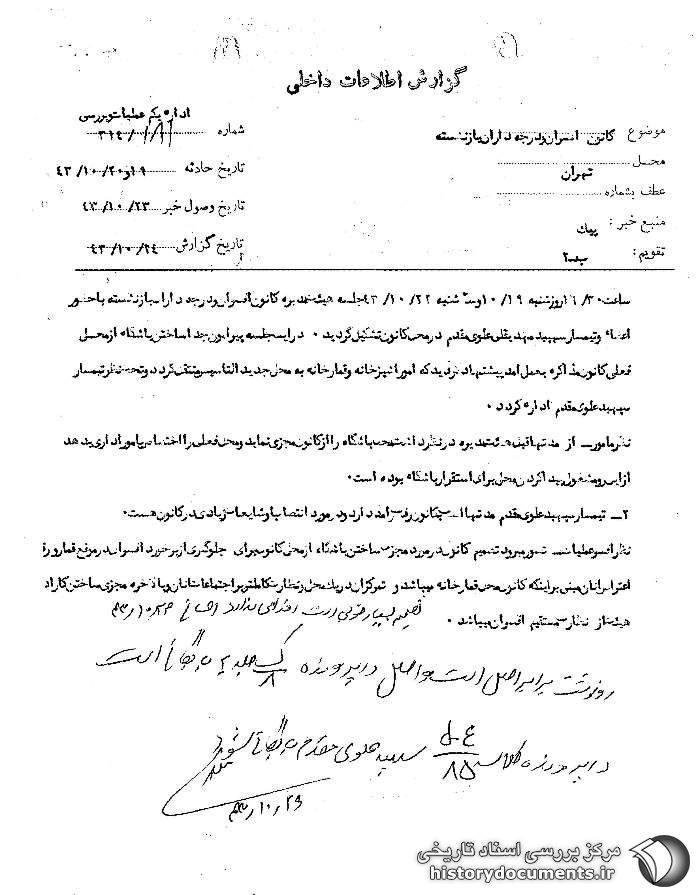 گزارش اطلاعات داخلی
اداره یکم عملیات و بررسی
موضوع کانون افسران و درجه داران بازنشسته
شماره
محل تهران
تاریخ حادثه ۱۹و۲۰/۱۰/۴۳
عطف بشماره
تاریخ وصول خبر ۲۳/۱۰/۴۳
منبع خبر :
تاریخ گزارش ۲۴/۱۰/۴۳
تقویم : ب-۲
ساعت ۶/۳۰ روز شنبه ۱۹/۱۰ و سه شنبه ۲۲/۱۰/۴۳ جلسه هیئت مدیره کانون افسران و درجه داران بازنشسته با حضور
اعضاء و تیمسار سپهبد مهدیقلی علوی مقدم در محل کانون تشکیل گردید ۰ در این جلسه پیرامون جدا ساختن باشگاه از محل
فعلی کانون مذاکره بعمل آمد پیشنهاد گردید که امور آشپزخانه و قمارخانه به محل جدید التاسیس منتقل گردد و تحت نظر تیمسار
سپهبد علوی مقدم اداره گردد ۰
نظر مامور ـ از مدتها قبل هیئت مدیره در نظر داشت محل باشگاه را از کانون مجزی نماید و محل فعلی را اختصاص بامور اداری بدهد
از اینرو مشغول پیدا کردن محل برای استقرار باشگاه بوده است ۰
۲ـ تیمسار سپهبد علوی مقدم مدتها است بکانون رفت و آمد دارد و در مورد انتصاب او شایعات زیادی در کانون هست ۰
نظر افسر عملیات ـ تصور میرود تصمیم کانون در مورد مجزی ساختن باشگاه از محل کانون برای جلوگیری از برخورد افسران در موقع قمار و رفع
اعتراض آنان مبنی بر اینکه کانون محل قمارخانه میباشد و تمرکز آن در یک محل و نظارت کاملتر بر اجتماعات آنان و بالاخره مجزی ساختن کادر اداری
هیئت از نظارت مستقیم افسران میباشد ۰
رونوشت برابر اصل است و اصل در پرونده بایگانی است
در پرونده کلاسه سپهبد علوی مقدم بایگانی شود
۲۹/۱۰/۴۳
مرکز بررسی اسناد تاریخی
historydocuments.ir